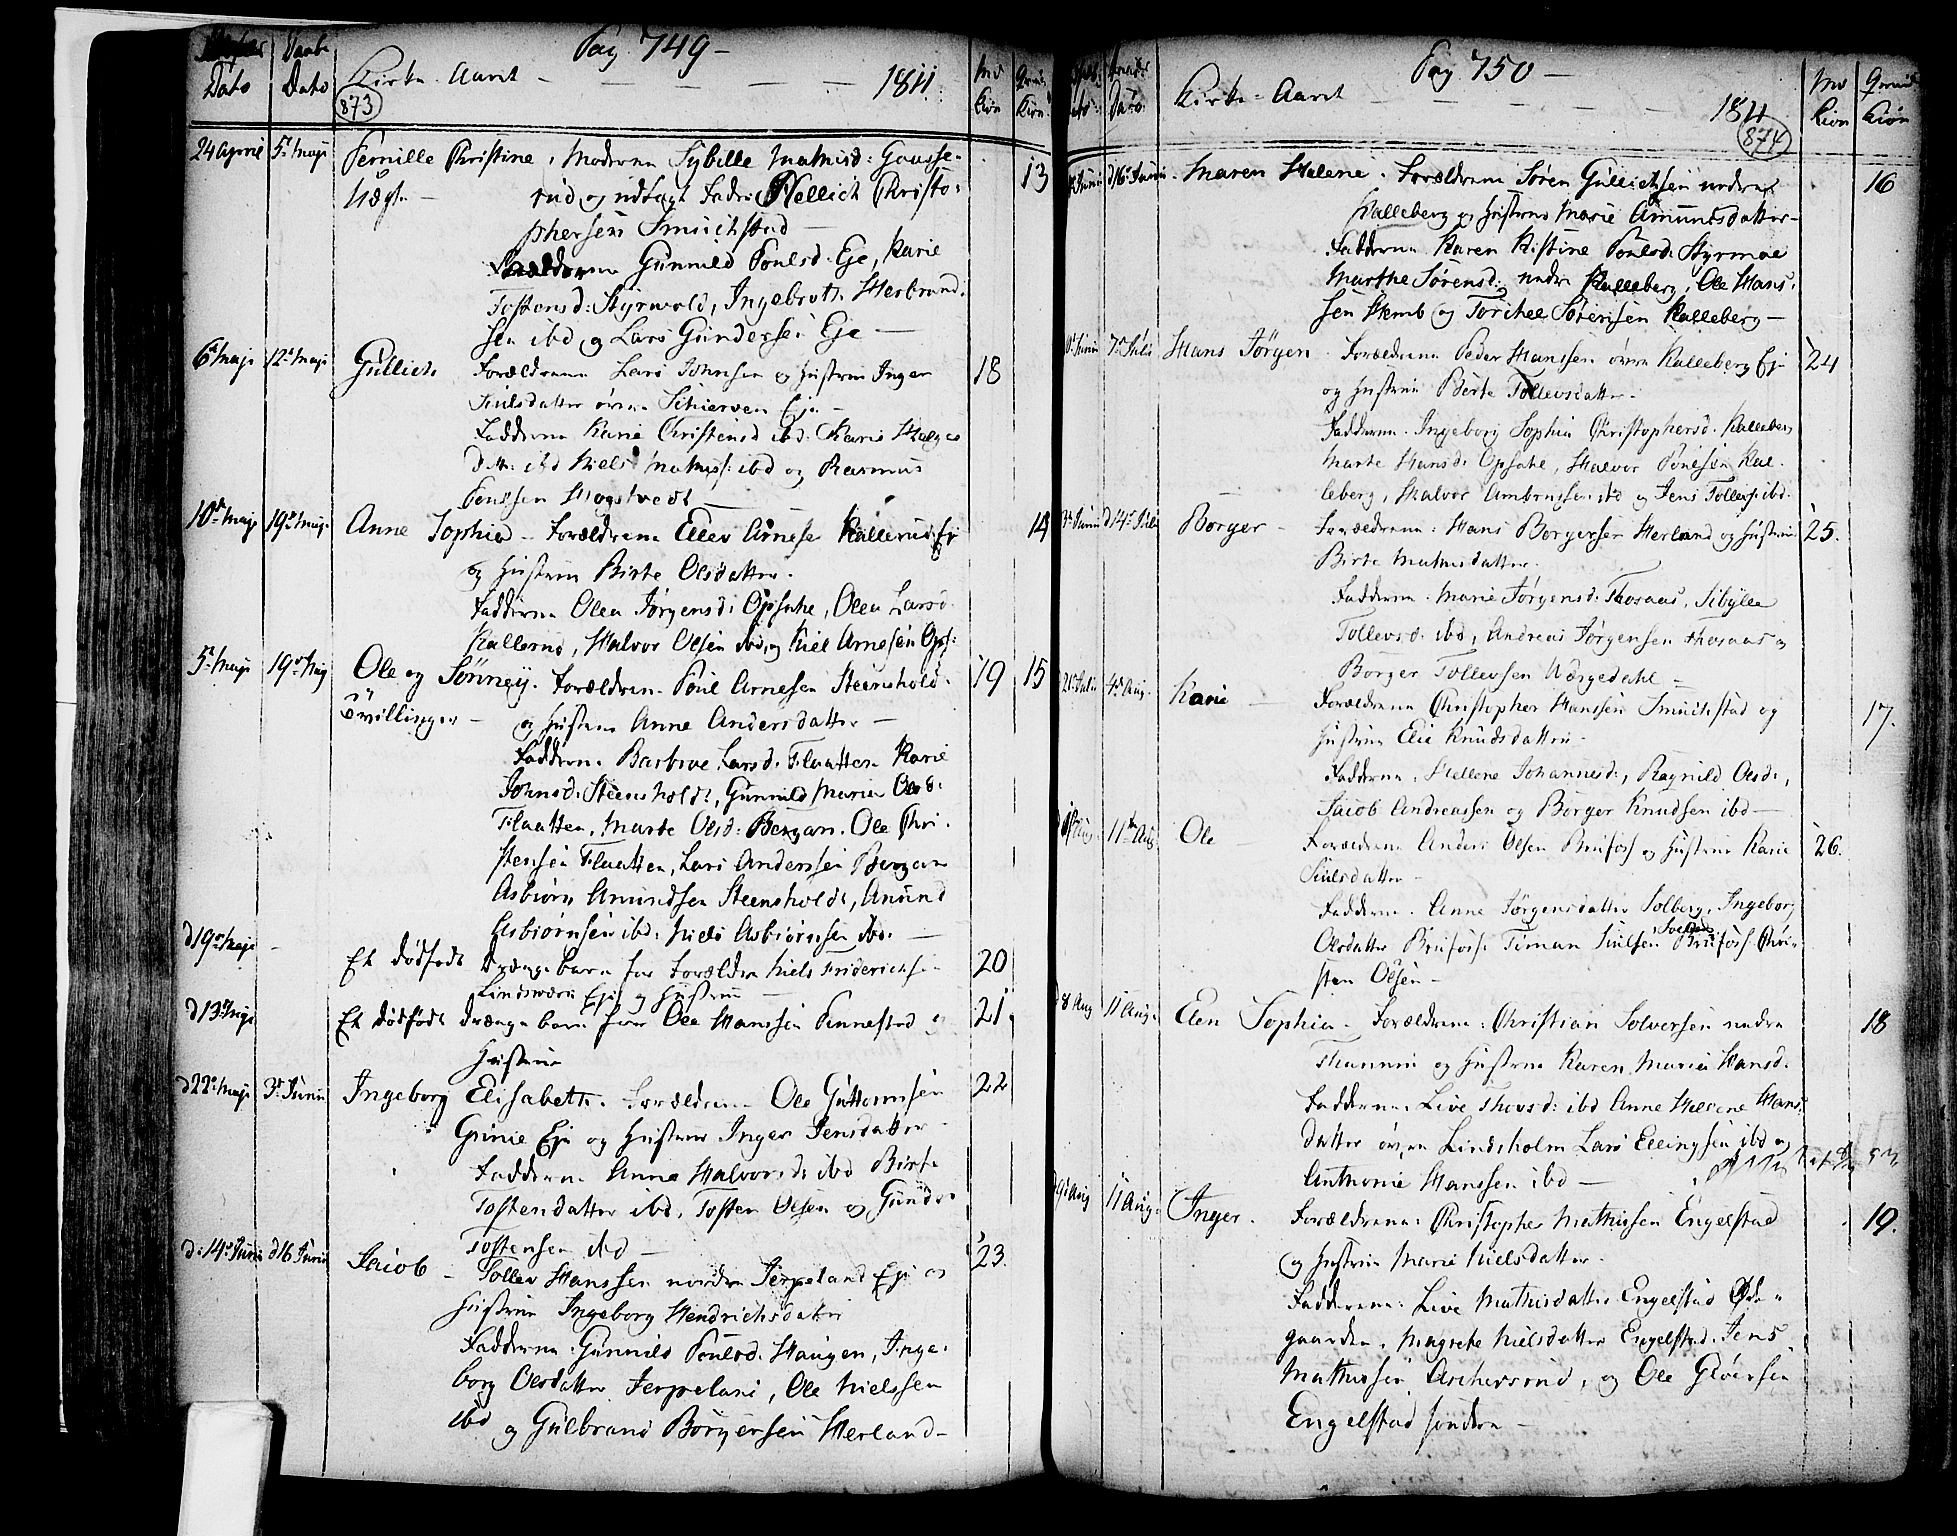 Pag 749 –
Dato
Daabs Dato
Kirke-Aaret – – – – 1811.
873
24 April 5te Maji Pernille Christine, Moderen Sybille Mathisd: Gausse- 13
Uægte – rud og udlagt Fader Hellich Christo-
phersen Smuchstad –
Gunnild Poulsd. Eje, Karie
Tostensd: Styrvold, Ingebreth Herbrand-
sen ibd og Lars Gundersen Eje –
6te Maji 12te Maji Gullich Forældrene Lars Johnsen og Hustrue Inger 18
Juulsdatter øvre Schierven Eje –
Fadderne Karie Christensd ibd: Karie Helge
Dtt: ibd Niels Mathiss: ibd og Rasmus
Poulsen Hogstvedt –
10de Maji 19de Maji Anne Sophie – Forældrene Ellev Arnesen Kallerud Ej 14
og Hustrue Birte Olsdatter.
Fadderne Olea Jørgensd: Opsahe, Olea Larsd.
Kallerud, Halvor Olsen ibd, og Kiel Arnesen Ops:
5te Maji 19de Maj Ole og Sønnev. Forældrene Poul Arnesen Steensholdt. 19 15
Tvillinger – og Hustrue Anne Andersdatter –
Fadderne Barbroe Larsd. Flaatten Karie
Johnsd: Steensholdt, Gunnild Marie Olsd:
Flaatten, Marte Olsd: Bergan. Ole Chri-
stensen Flaatten, Lars Andersen Bergan
Asbiørn Amundsen Steensholdt, Amund
Asbiørnsen ibd. Niels Asbiørnsen ibd. –
d 19de Maji – Et dødfødt Drængebarn for Forældre Niels Friderichse- 20
Lindsværn Eje og Hustrue –
d 13de Maji Et dødfødt Drængebarn for Ole Hanssen Pinnestad og 21.
Hustrue
d 22de Maji 3de Junii Ingeborg Elisabeth. Forældrene Ole Guttormsen 22
Grinie Eje og Hustrue Inger Jensdatter –
Fadderne Anne Halvorsd: ibd Birte
Tostensdatter ibd. Tosten Olsen og Gunder
Tostensen ibd –
d: 14de Junii d 16 Junii Jacob – Tollev Hanssen nordre Jerpeland Eje og 23.
Hustrue Ingeborg Hendrichsdatter
Fadderne: Gunnild Poulsd. Haugen, Inge-
borg Olsdatter Jerpeland, Ole Nielssen
ibd og Gulbrand Børgersen Herland –
Pag 750 –
Kirke-Aaret – – – – 1811
874
Junii d 16de Junii Maren Helene. Forældrene Søren Gullichsen nedre 16
Kalleberg og Hustrue Marie Amundsdatter –
Fadderne Karen Kistine Poulsd: Styrmoe
Marthe Sørensd: nedre Kalleberg, Ole Hans-
sen Hemb og Torchel Sørensen Kalleberg –
Junii 7de Julii Hans Jørgen – Forældrene Peder Hanssen øvre Kalleberg Eje 24
og Hustrue Berte Tollevsdatter.
Fadderne. Ingeborg Sophie Christophersd. Kalleberg
Marte Hansd: Opsahe, Halvor Poulsen Kal-
leberg, Halvor Ambrossen ibd og Jens Tollevs: ibd.
Junii d 14de Julii Borger – Forældrene: Hans Borgersen Herland og Hustrue 25.
Birte Mathisdatter.
Fadderne. Marie Jørgensd: Thosaas, Sibylle
Tollevsd: ibd, Andreas Jørgensen Thosaas og
Borger Tollevsen Wærgedahl –
21de Julii 4de Aug. Karie – Forældrene Christopher Hanssen Smuchstad og 17.
Hustrue Elie Knudsdatter –
Fadderne. Hellene Johannesd:, Ragnild Olsd:,
Jacob Andreassen og Borger Knudsen ibd –
Aug. 11te Aug. Ole – Forældrene Anders Olsen Brufos og Hustrue Karie 26.
Juulsdatter –
Fadderne. Anne Jørgensdatter Solberg, Ingeborg
Olsdatter Brufos. Timan Juulsen Brufos Chri-
sten Olsen –
d 8 Aug 11 Aug. Elen Sophie – Forældrene: Christian Solversen nedre 18
Thammi og Hustrue Karen Marie Hansd.
Fadderne. Live Thovsd: ibd Anne Helene Hans
datter øvre Lindsholm Lars Ellingsen ibd og
Anthonie Hanssen ibd –
9de Aug 11 Aug. Inger. Forældrene: Christopher Mathissen Engelstad 19.
og Hustrue Marie Nielsdatter.
Fadderne: Live Mathisdatter Engelstad Øde-
gaarden. Magrete Nielsdatter Engelstad. Jens
Mathissen Aschersrud, og Ole Gløersen
Engelstad søndre –